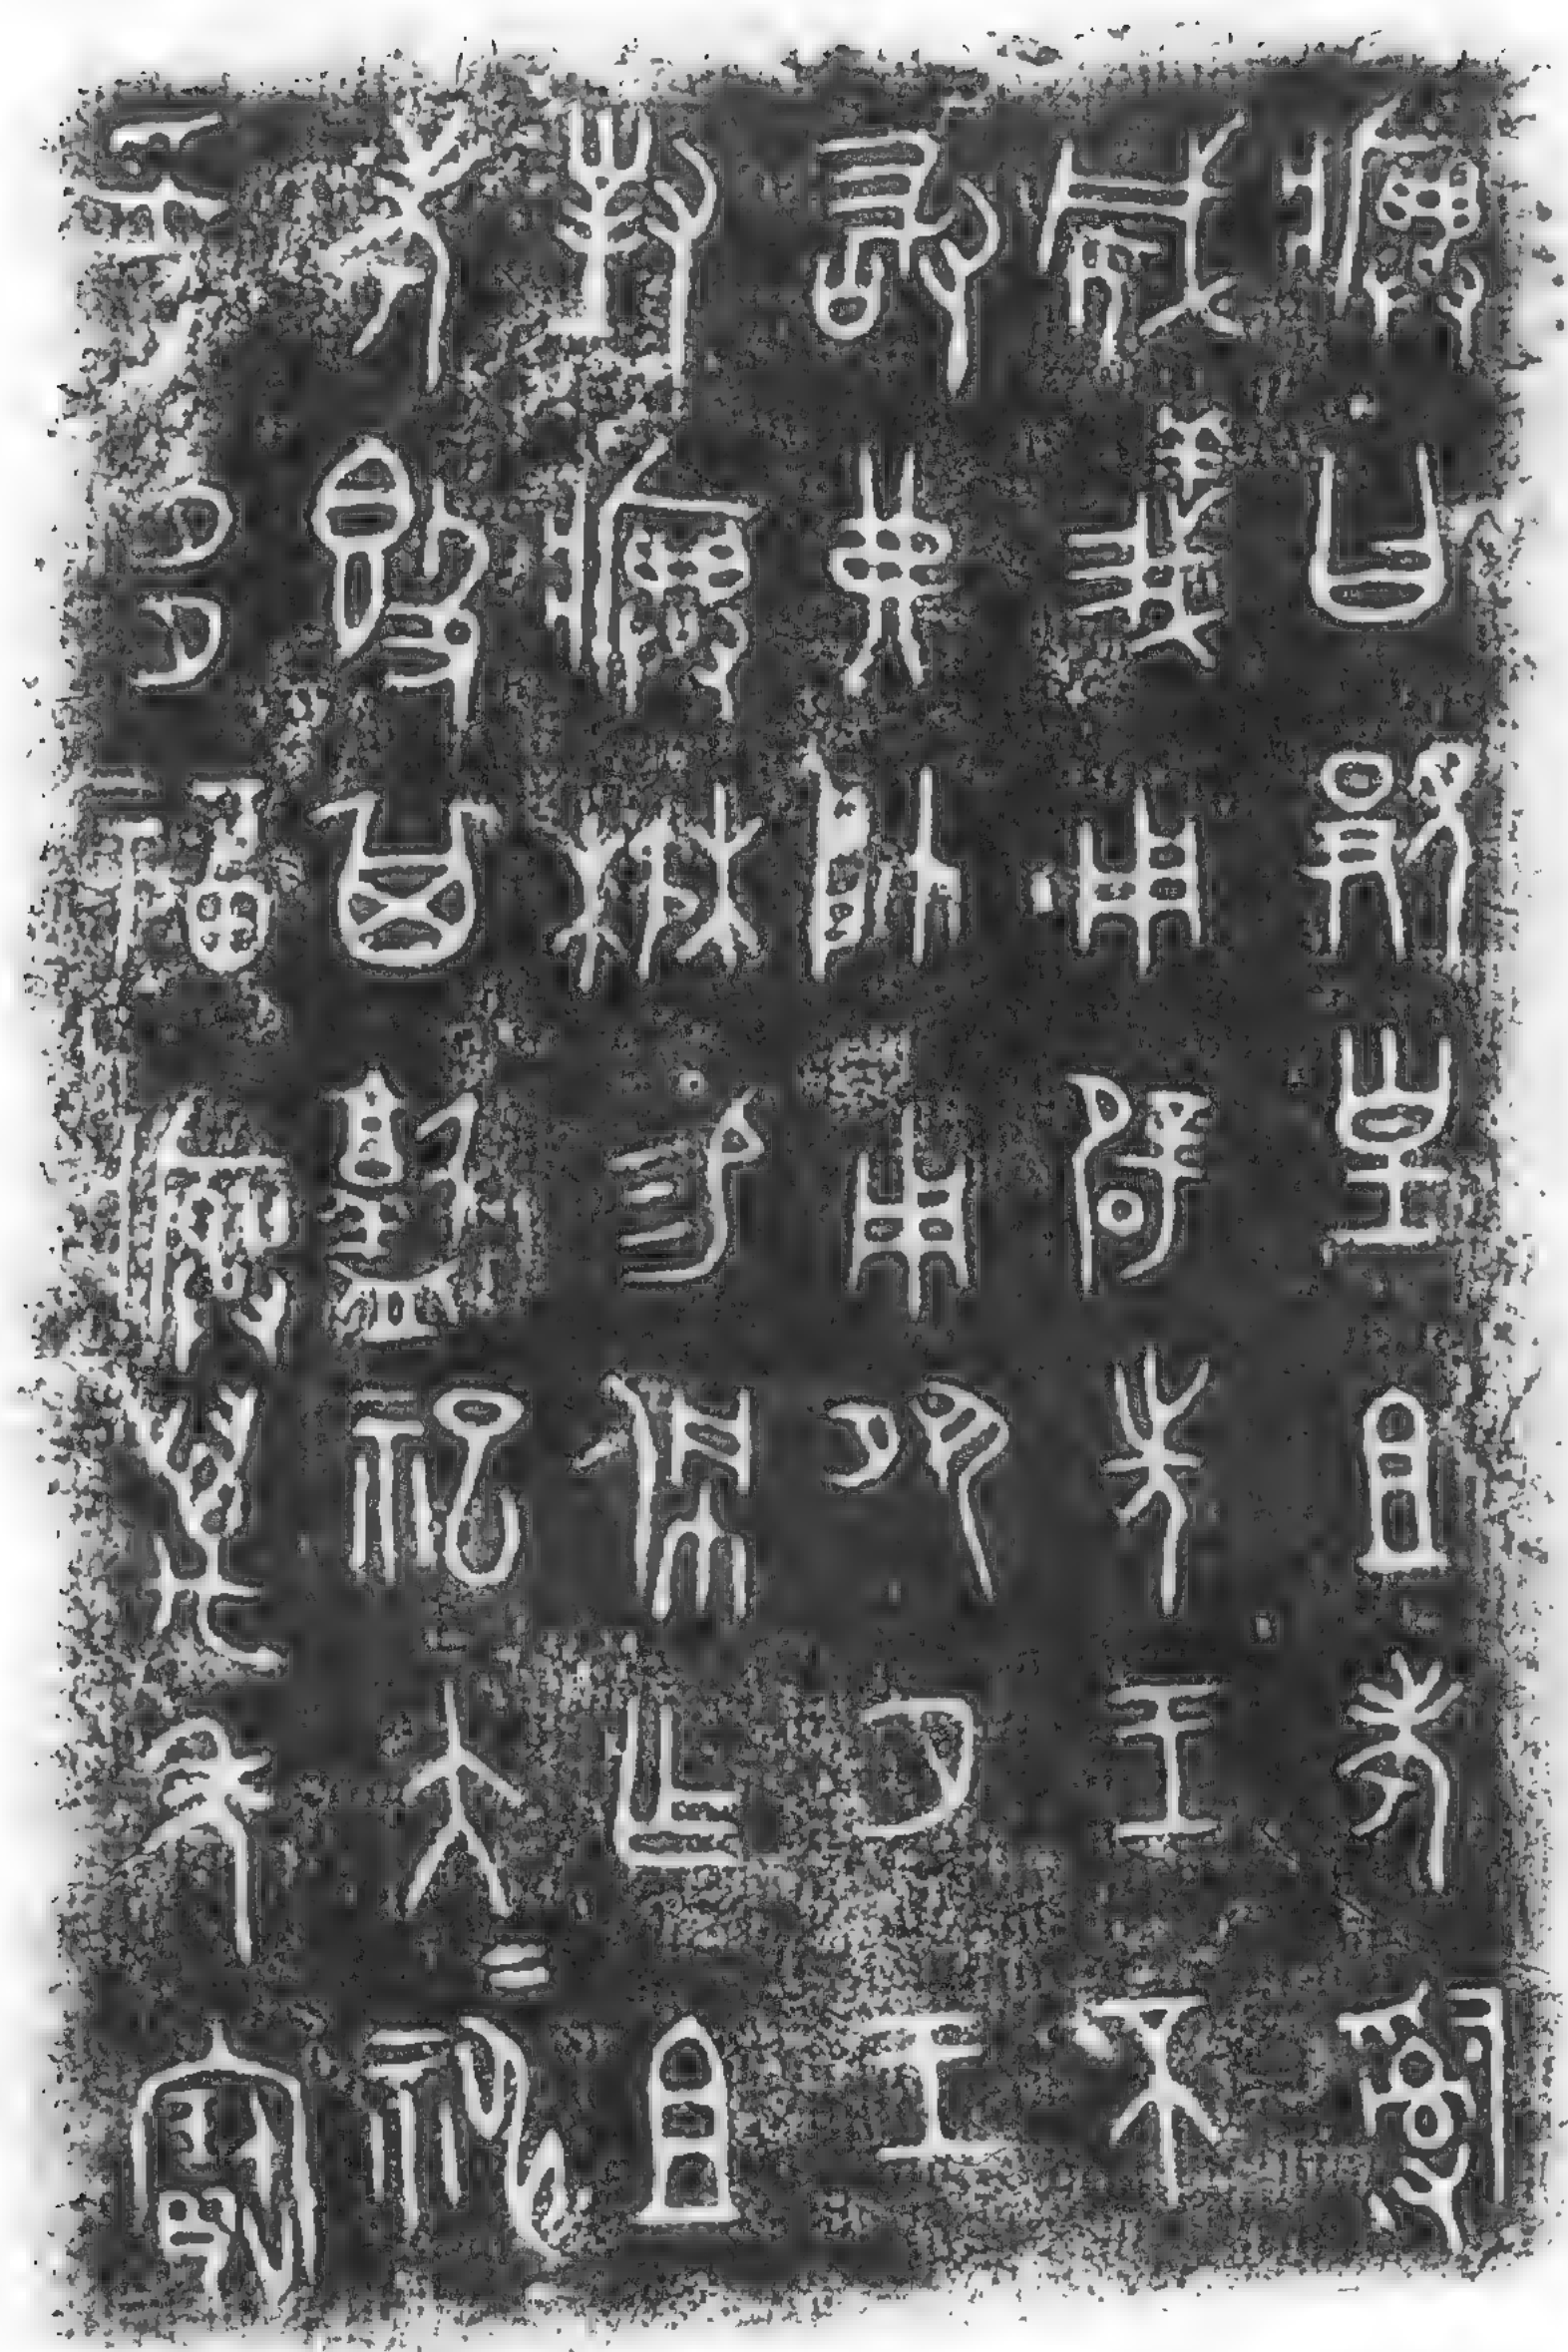 𤼈曰覭皇且考𤔲
威義用辟先王不
敢弗帥用夙夕王
對𤼈楙易佩乍且
考𣪘其𥂴祀大神=
妥多福𤼈萬年寶